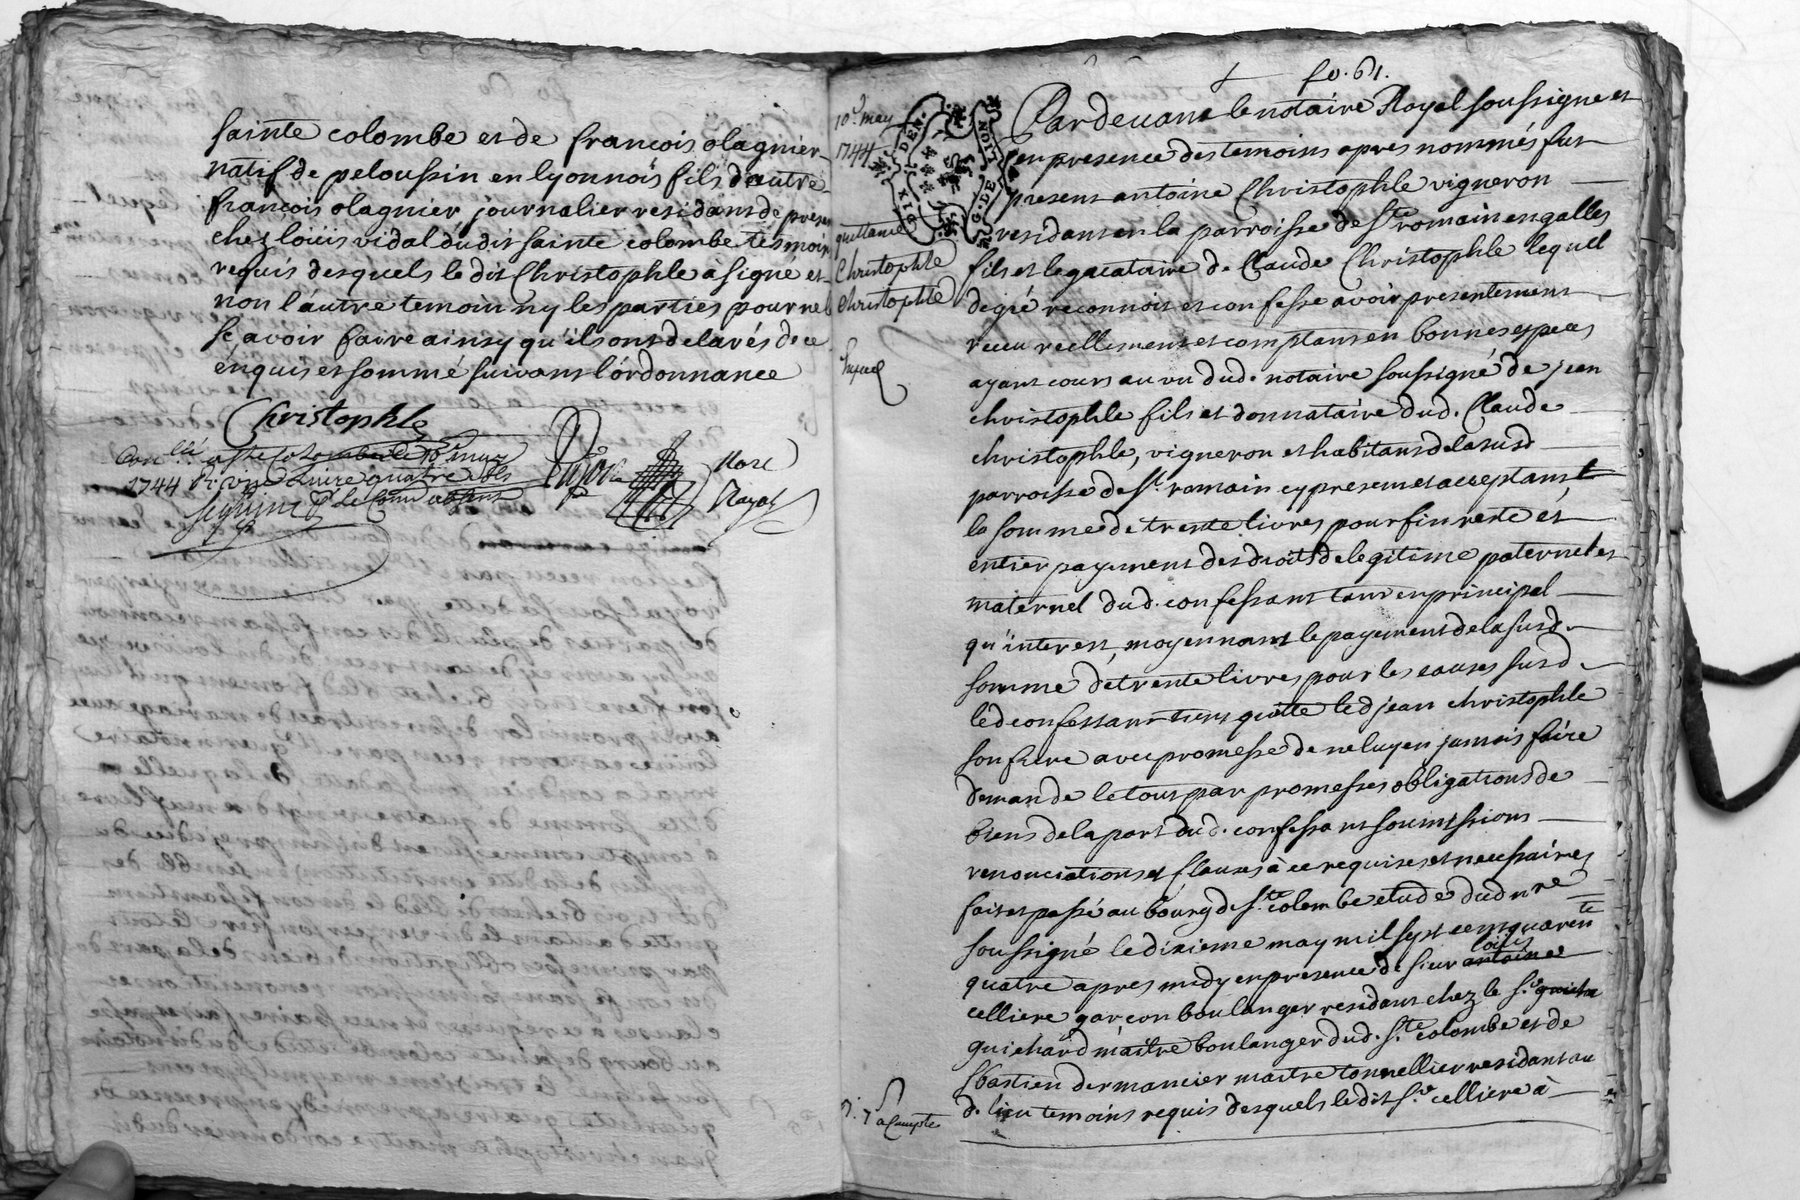 sainte colombe et de françois olagnier
natif de peloussin en lyonnois fils d'autre
françois olagnier journalier residant de presen
chez loüis vidal dudit sainte colombe tesmoin
requis desquels le dit Christophle à signé et
non l'autre temoin ny les parties pour ne
sçavoir faire ainsy qu'ils ont delarés de ce
enquis et sommé suivant l'órdonnance
Christophle
1744 quatre sols
fo. 61.
10e may
1744
DIX DEN.
G. DE LION
quittance
Christophle
Christophle
à Compte
Pardevant le notaire Royal soussigné et
en presence des temoins apres nommés fut
present antoine Christophle vigneron
residant en la parroisse de Ste romain en galles
fils et legataire de Claude Christophle lequel
de gré reconnoit et confesse avoir presentement
receu reellement et comptant en bonnes especes
ayant cours au vu dud. notaire soussigné de jean
christophle fils et donnataire dud. Claude
christophle, vigneron et habitant de la susd
parroisse de St romain cy present et acceptant
la somme de trente livres pour fin reste et
entier payement des droits de legitime paternel et
maternel dud. confessant tant en principal
qu'interest, moyennant le payement de la susd.
somme de trente livres pour les causes susd.
led confessant tient quitte led jean christophle
son frere avec promesse de ne luy en jamais faire
demande le tout par promesses obligations de
biens de la part dud. confessant soumissions
renonciations et clauses à ce requises et necessaires
fait et passé au bourg de Ste colombe etude dud nre
soussigné le dixieme may mil sept cent quarente
loüis
quatre apres midy en presence de sieur antoine
celliere garçon boulanger residant chez le sr
guichard maitre boulanger dud. Ste colombe et de
sbastien dermancier maitre tonnellier residant au
d. lieu temoins requis desquels le dit sr. celliere à